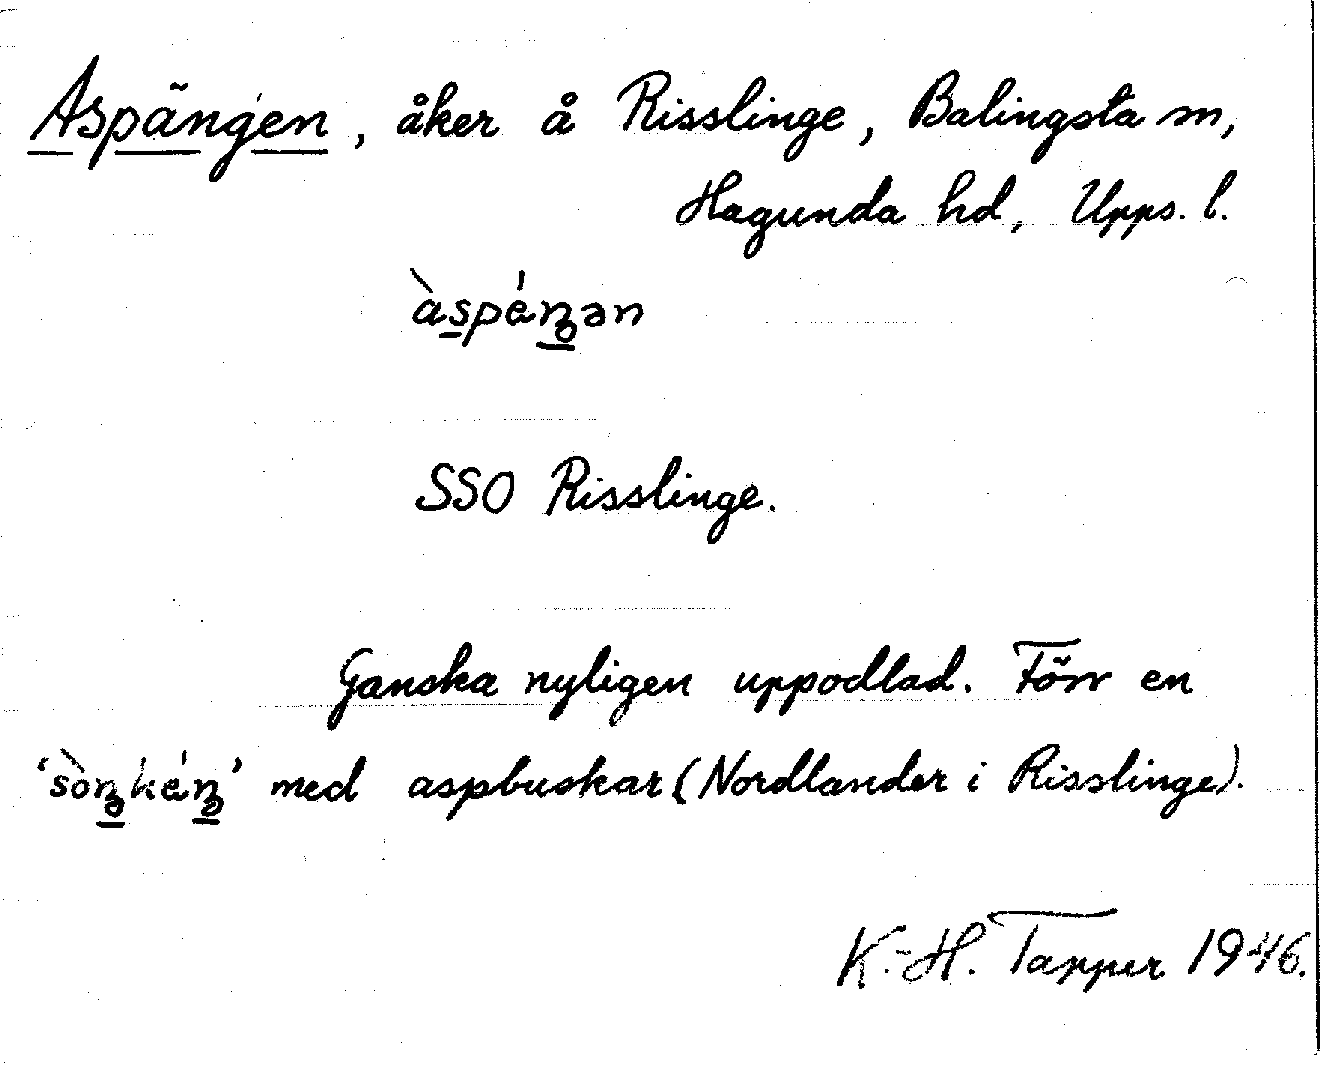 Aspängen, åker å Risslinge, Balingsta sn,
Hagunda hd, Upps. l.
àspáŋən
SSO Risslinge.
Ganska nyligen uppodlad. Förr en
‘sòŋkáŋ’ med aspbuskar (Nordlander i Risslinge).
K.-H. Tapper 1946.